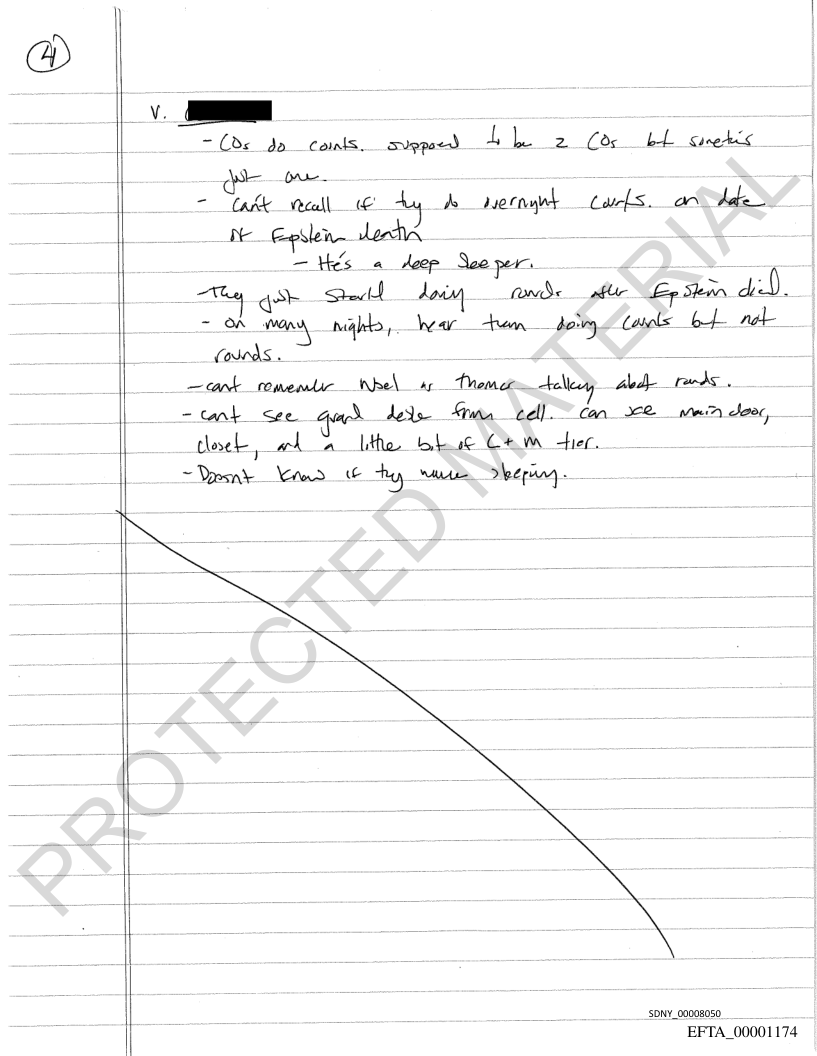 4
V.
- COs do counts. supposed to be 2 COs but sometimes
just one.
- can't recall if they do overnight counts. on date
of Epstein death
- He's a deep sleeper.
- They just started doing rounds after Epstein died.
- on many nights, hear them doing counts but not
rounds.
- cant remember Noel or Thomas talking about rounds.
- cant see guard desk from cell. can see main door,
closet, and a little bit of C + M tier.
- Doesnt know if they were sleeping.
PROTECTED MATERIAL
SDNY_00008050
EFTA_00001174